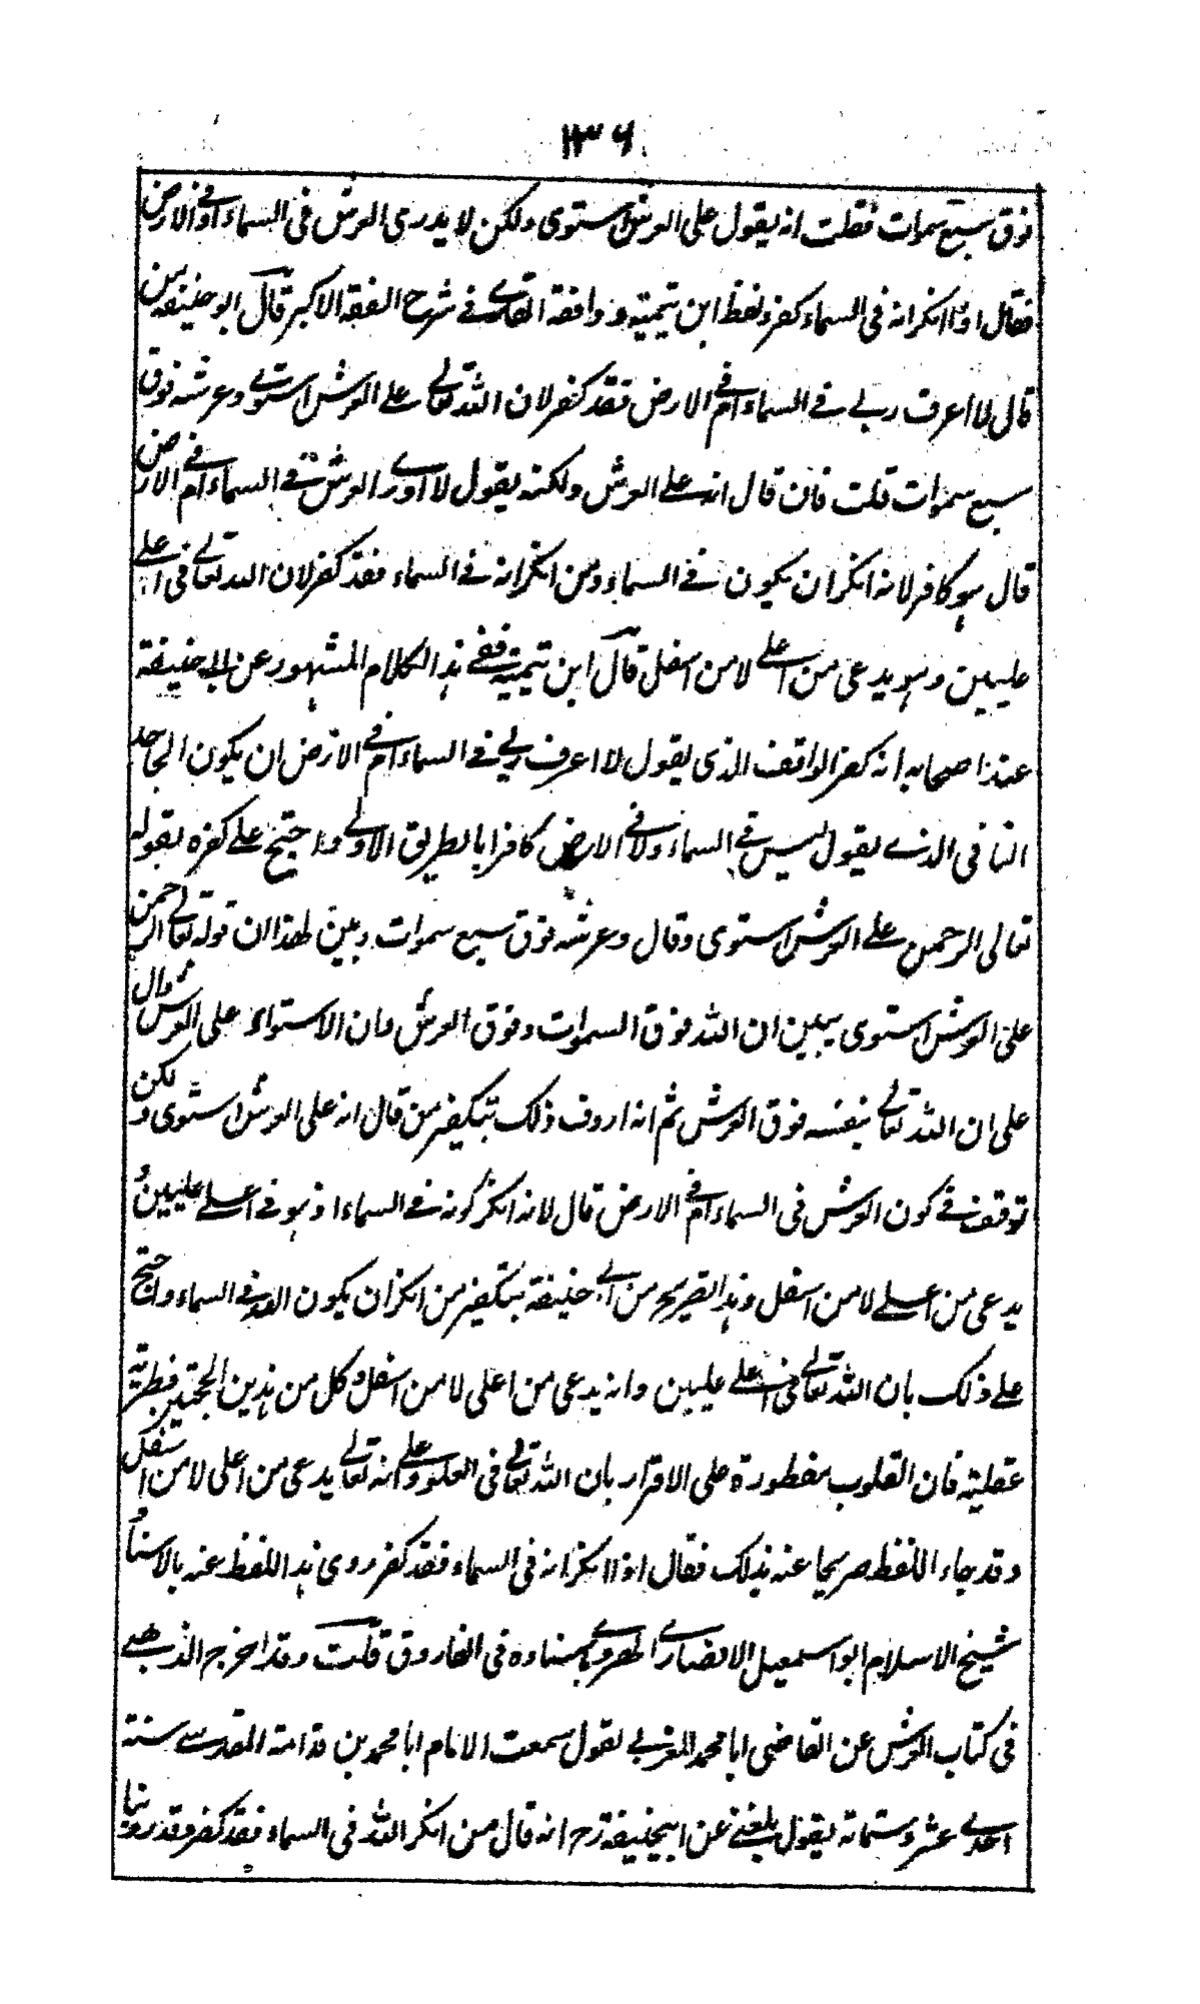 ١٣٦
فوق سبع سموات فقلت انه يقول على العرش استوى ولكن لا يدرى العرش فى السماء او فى الارض
فقال اذا انكر انه فى السماء كفر ولفظ ابن تيمية و وافقه القارى فى شرح الفقه الاكبر قال ابو حنيفة من
قال لا اعرف ربى فى السماء ام فى الارض فقد كفر لان الله تعالى على العرش استوى وعرشه فوق
سبع سموات قلت فان قال انه على العرش ولكنه يقول لا ادرى العرش فى السماء ام فى الارض
قال هو كافر لانه انكر ان يكون فى السماء ومن انكر انه فى السماء فقد كفر لان الله تعالى فى اعلى
عليين وهو يدعى من اعلى لا من اسفل قال ابن تيمية ففى هذا الكلام المشهور عن ابى حنيفة
عند اصحابه انه كفر الواقف الذى يقول لا اعرف ربى فى السماء ام فى الارض ان يكون الجاحد
النافى الذى يقول ليس فى السماء ولا فى الارض كافرا بالطريق الاولى واحتج على كفره بقوله
تعالى الرحمن على العرش استوى وقال وعرشه فوق سبع سموات وبين لهذا ان قوله تعالى الرحمن
على العرش استوى يبين ان الله فوق السموات وفوق العرش وان الاستواء على العرش دال
على ان الله تعالى بنفسه فوق العرش ثم انه اردف ذلك بتكفير من قال انه على العرش استوى ولكن
توقف فى كون العرش فى السماء ام فى الارض قال لانه انكر كونه فى السماء اذ هو فى اعلى عليين و
يدعى من اعلى لا من اسفل وهذا تصريح من ابى حنيفة بتكفير من انكر ان يكون الله فى السماء واحتج
على ذلك بان الله تعالى فى اعلى عليين وانه يدعى من اعلى لا من اسفل وكل من هذين الحجتين فطرية
عقلية فان القلوب مفطورة على الاقرار بان الله تعالى فى العلو وعلى انه تعالى يدعى من اعلى لا من اسفل
وقد جاء اللفظ صريحا عنه بذلك فقال اذا انكر انه فى السماء فقد كفر روى هذا اللفظ عنه بالاسناد
شيخ الاسلام ابو اسمعيل الانصارى الهروى باسناده فى الفاروق قلت وقد اخرج الذهبى
فى كتاب العرش عن القاضى ابا محمد المغربى يقول سمعت الامام ابا محمد بن قدامة المقدسى سنة
احدى عشر وستمائة يقول بلغنى عن ابيحنيفة رح انه قال من انكر الله فى السماء فقد كفر وقد روينا